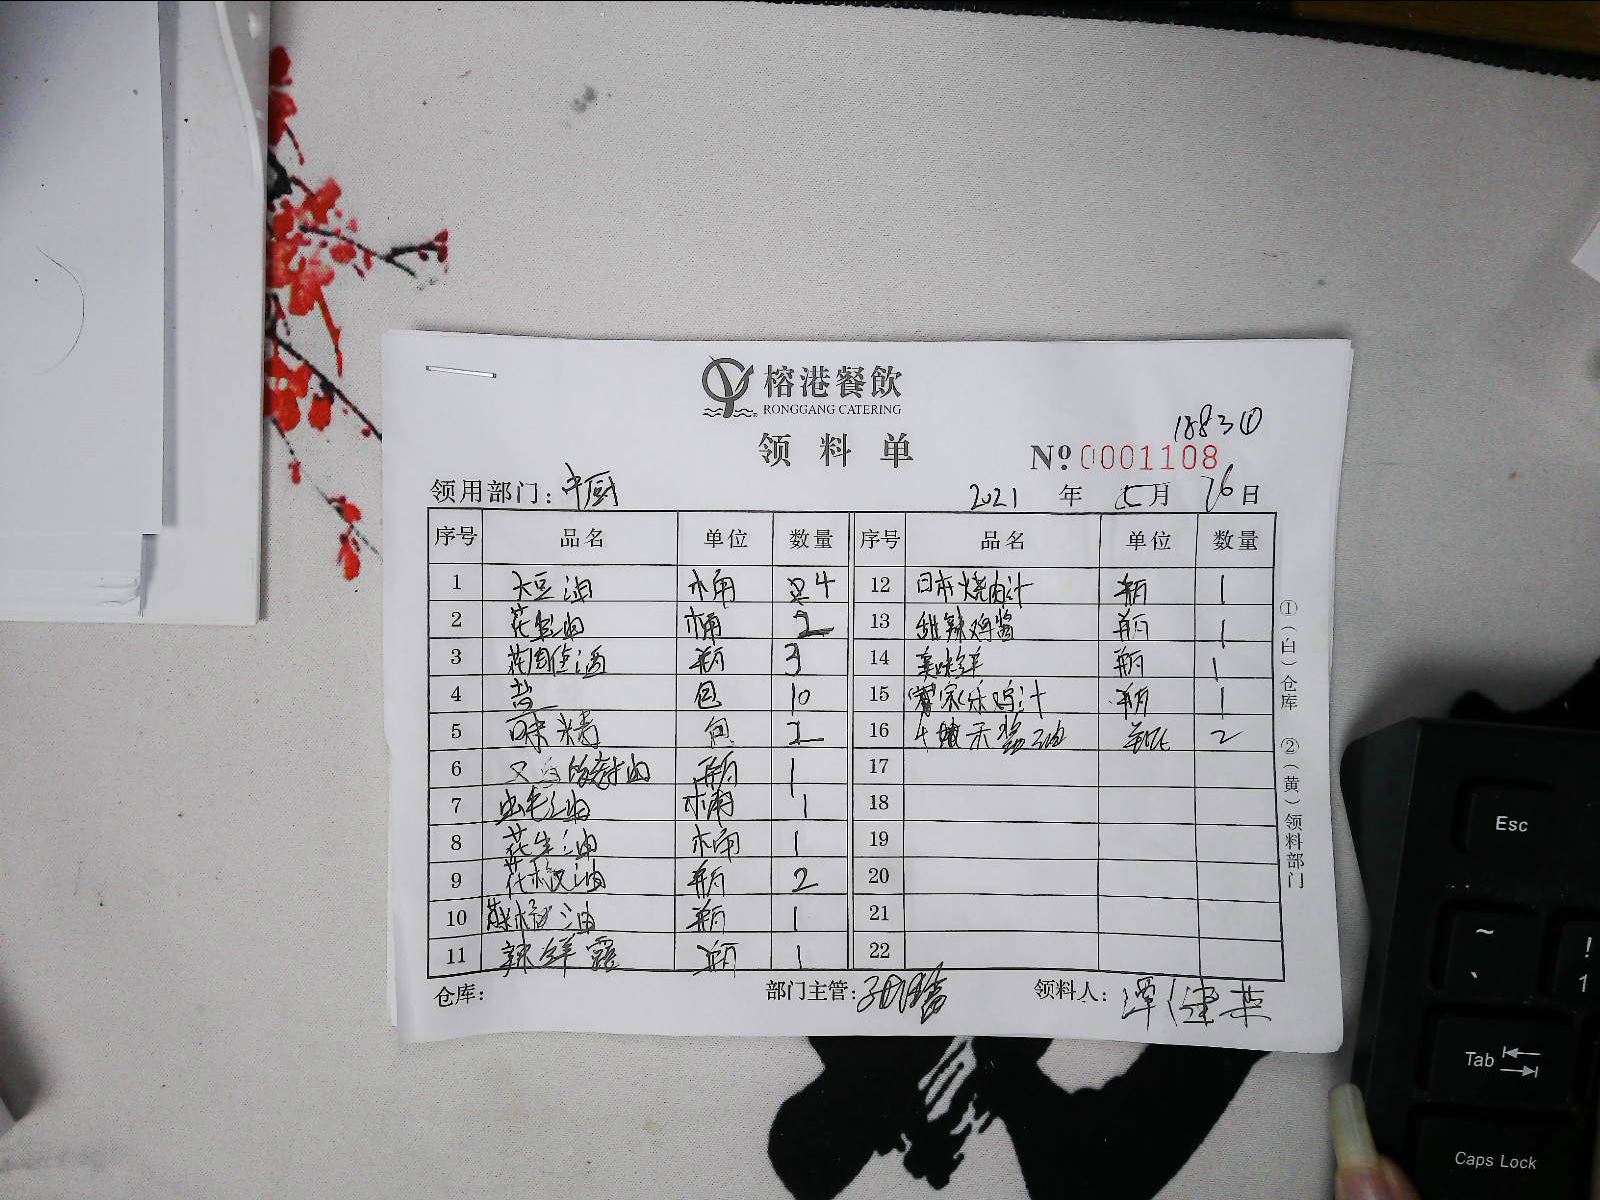 榕港餐飲
RONGGANG CATERING
领料单
1883①
Nº 0001108
领用部门：中厨
2021 年 5月 16日
序号 品名 单位 数量 序号 品名 单位 数量
1 大豆油 桶 4 12 日本烧肉汁 瓶 1
2 花生油 桶 2 13 甜辣鸡酱 瓶 1
3 花雕酒 瓶 3 14 美味鲜 瓶 1
4 盐 包 10 15 家乐鸡汁 瓶 1
5 味精 包 2 16 酱油 瓶 2
6 瓶 1 17
7 油 桶 1 18
8 花生油 桶 1 19
9 花椒油 瓶 2 20
10 油 瓶 1 21
11 辣鲜露 瓶 1 22
仓库： 部门主管： 领料人：谭健英
①（白）仓库 ②（黄）领料部门
Esc
~
、
!
1
Tab
Caps Lock